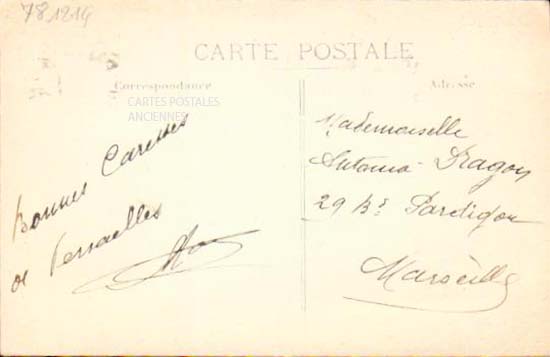 78/1214
CARTE POSTALE
Correspondance
Adresse
CARTES POSTALES
ANCIENNES
Bonnes Caresses
de Versailles
Mademoiselle
Antonia Dragon
29 Bd Pardigon
Marseille